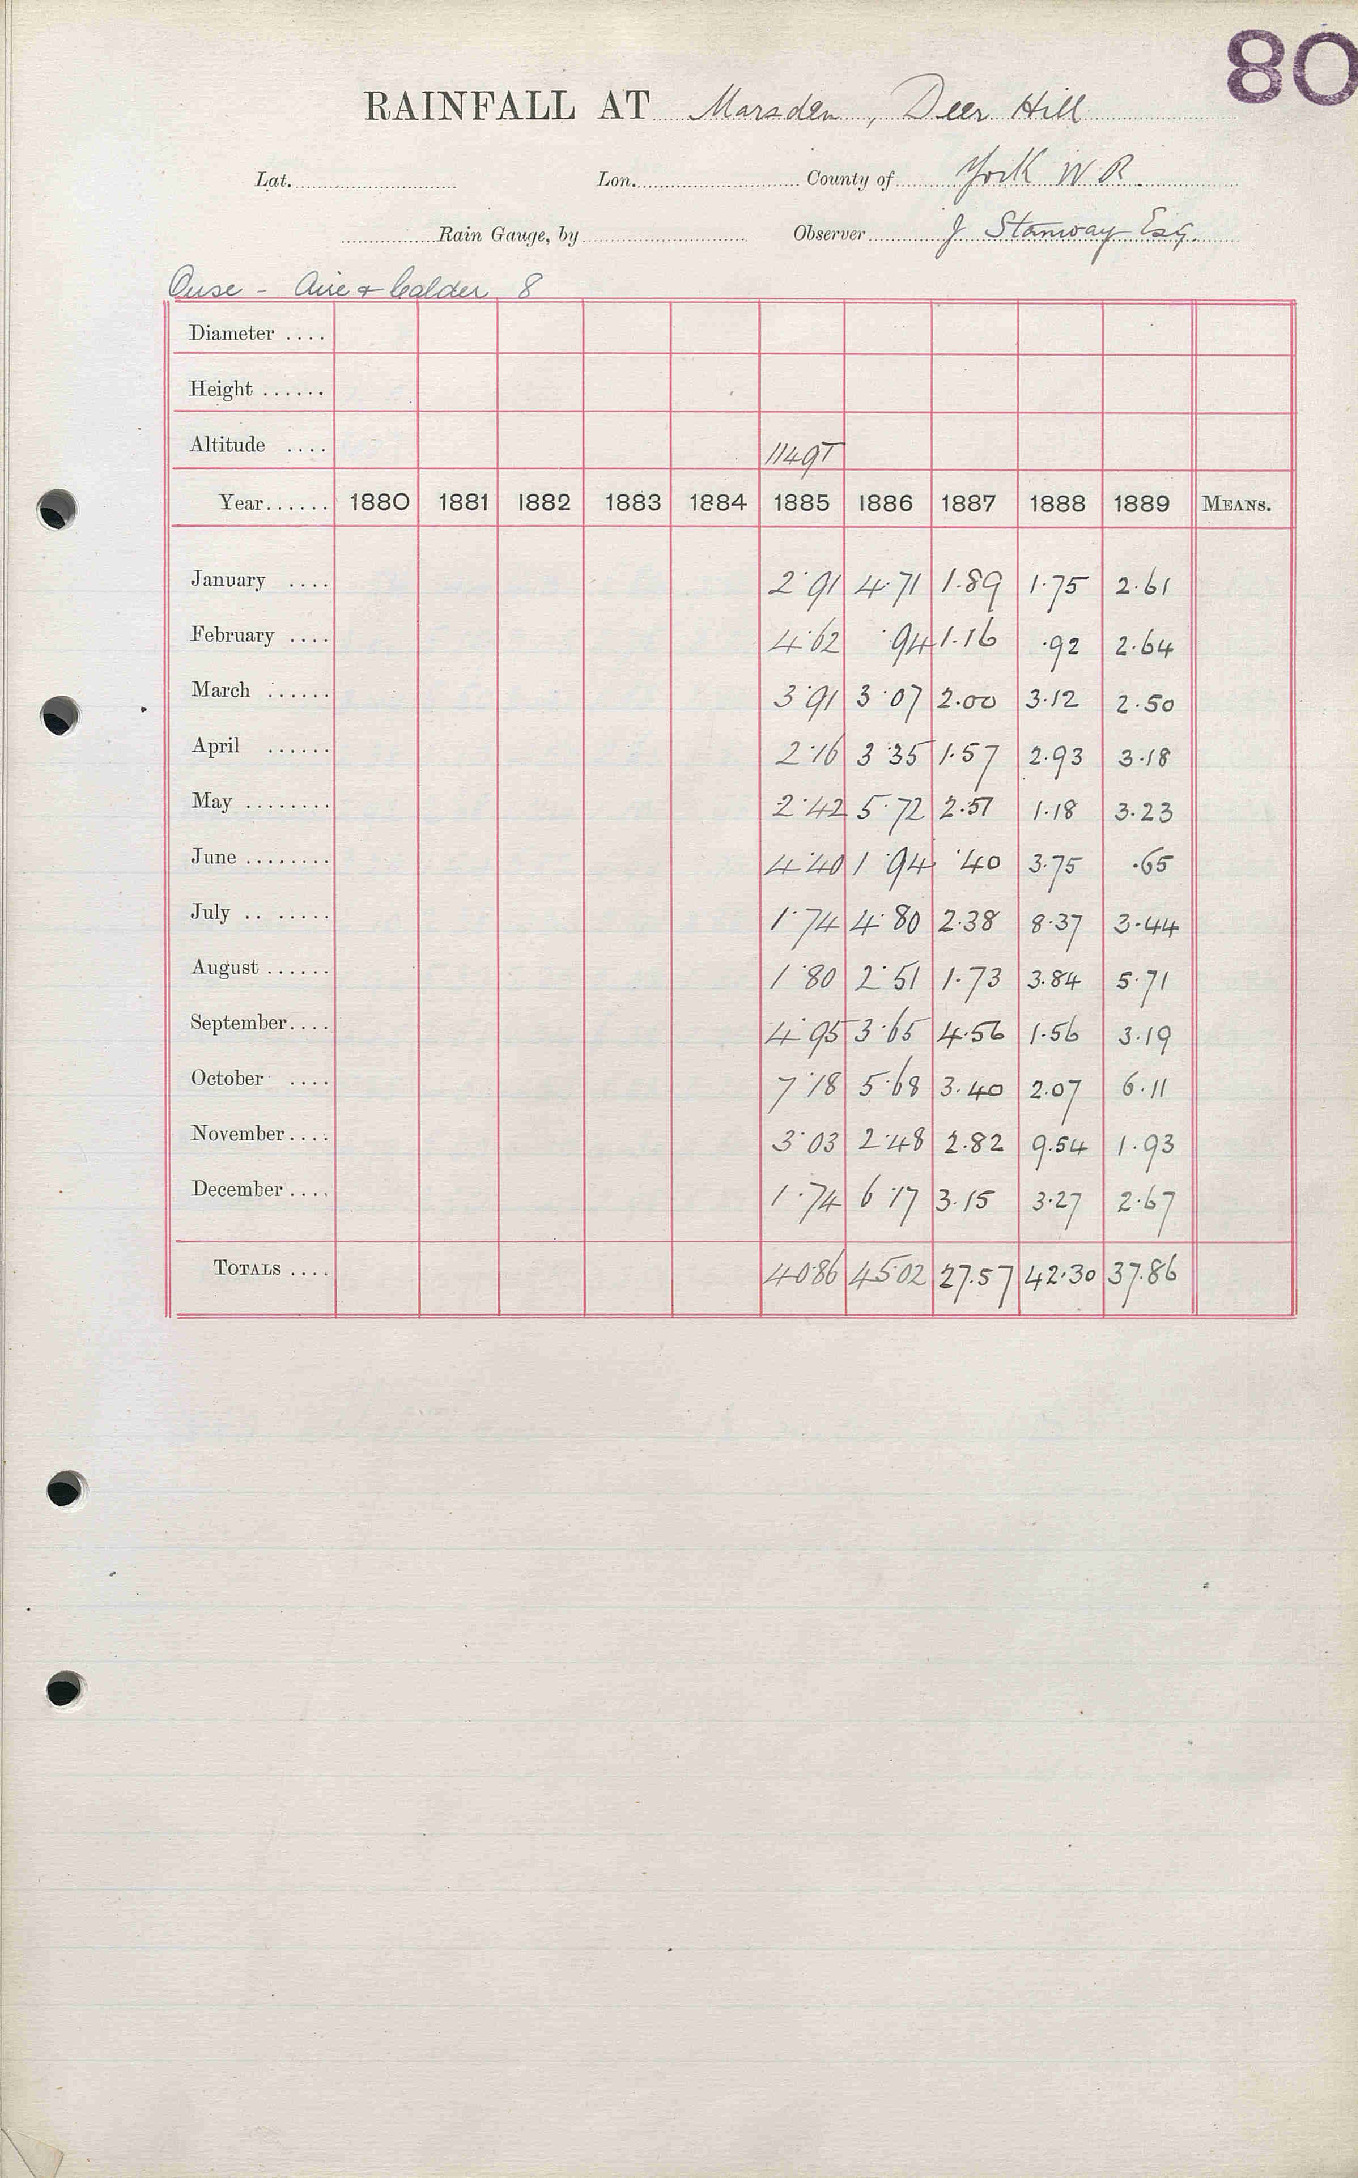 80
RAINFALL AT Marsden, Deer Hill
Lat. Lon. County of York W R.
Rain Gauge, by Observer J Stanway Esq.
Ouse - Aire & Calder 8
Diameter ....
Height ......
Altitude .... 1149T
Year...... 1880 1881 1882 1883 1884 1885 1886 1887 1888 1889 MEANS.
January .... 2.91 4.71 1.89 1.75 2.61
February .... 4.62 .94 1.16 .92 2.64
March ...... 3.91 3.07 2.00 3.12 2.50
April ...... 2.16 3.35 1.57 2.93 3.18
May ........ 2.42 5.72 2.51 1.18 3.23
June ........ 4.40 1.94 .40 3.75 .65
July .. ..... 1.74 4.80 2.38 8.37 3.44
August ...... 1.80 2.51 1.73 3.84 5.71
September.... 4.95 3.65 4.56 1.56 3.19
October .... 7.18 5.68 3.40 2.07 6.11
November.... 3.03 2.48 2.82 9.54 1.93
December.... 1.74 6.17 3.15 3.27 2.67
TOTALS .... 40.86 45.02 27.57 42.30 37.86